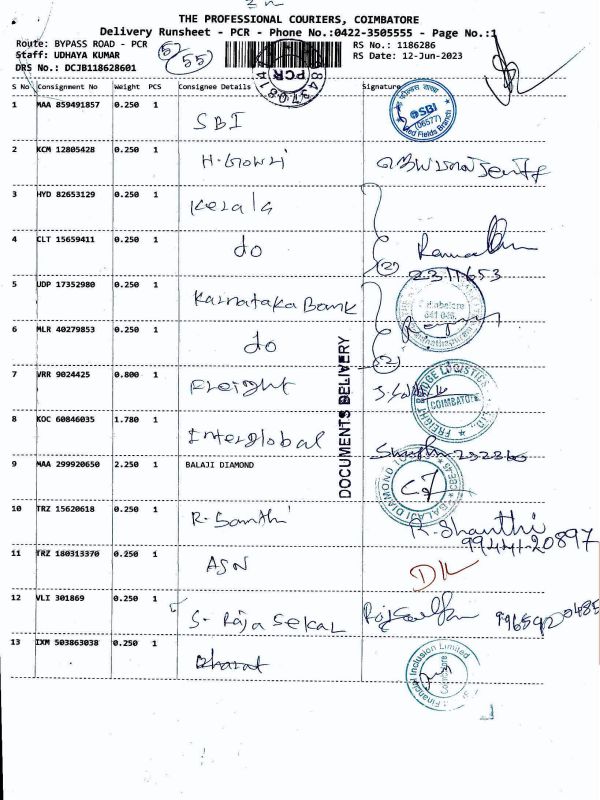 THE PROFESSIONAL COURIERS, COIMBATORE
Delivery Runsheet - PCR - Phone No.:0422-3505555 - Page No.:1
Route: BYPASS ROAD - PCR
52
55
RS No.: 1186286
Staff: UDHAYA KUMAR
RS Date: 12-Jun-2023
DRS No.: DCJB118628601
PCR
S No Consignment No Weight PCS Consignee Details Signature
1 MAA 859491857 0.250 1 SBI
SBI
(06577)
2 KCM 12805428 0.250 1 H. Gowri
3 HYD 82653129 0.250 1 Kerala
4 CLT 15659411 0.250 1 do
(2) 2311653
5 UDP 17352980 0.250 1 Karnataka Bank
6 MLR 40279853 0.250 1 do
(2)
DOCUMENTS DELIVERY
7 VRR 9024425 0.800 1 Freight
FREIGHT BRIDGE LOGISTICS
COIMBATORE
8 KOC 60846035 1.780 1 Interglobal
9 MAA 299920650 2.250 1 BALAJI DIAMOND
BALAJI DIAMOND
10 TRZ 15620618 0.250 1 R. Santhi
R. Shanthi
99444-20897
11 TRZ 180313370 0.250 1 ASN
12 VLI 301869 0.250 1 S. Raja Sekar
9965920485
13 IXM 503863038 0.250 1 Bharat
Financial Inclusion Limited
Coimbatore